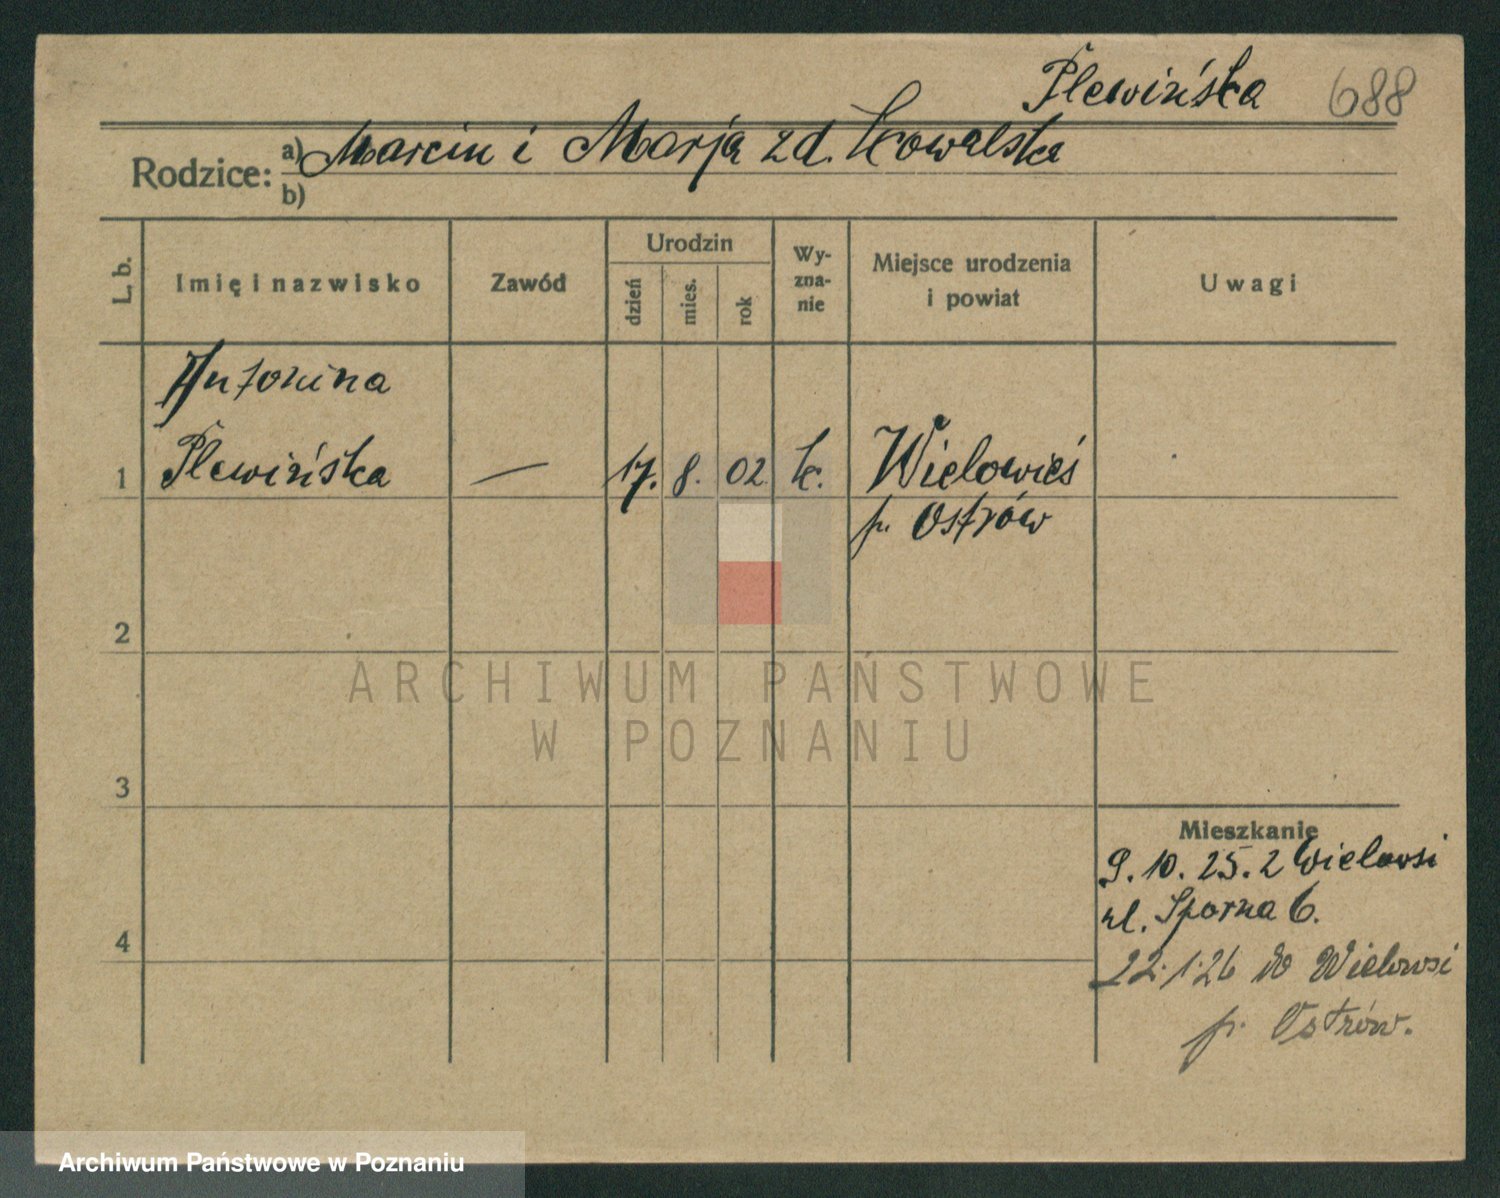 Plewińska 688
Rodzice: a) Marcin i Marja zd. Kowalska
b)
L. b. Imię i nazwisko Zawód Urodzin dzień mies. rok Wyznanie Miejsce urodzenia i powiat Uwagi
Antonina
1 Plewińska — 17. 8. 02 k. Wielowieś
p. Ostrów
2
ARCHIWUM PAŃSTWOWE
W POZNANIU
3
Mieszkanie
9. 10. 25. z Wielowsi
ul. Sporna 6.
4
22.1.26 do Wielowsi
p. Ostrów.
Archiwum Państwowe w Poznaniu